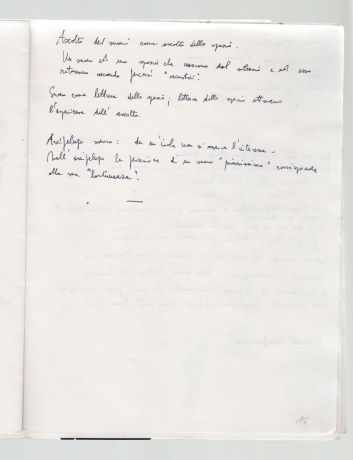 Ascolto dei suoni come ascolto dello spazio.
Un suono ed uno spazio che nascono dal silenzio e ad esso
ritornano secondo percorsi "acustici".
Suono come lettura dello spazio; lettura dello spazio attraverso
l'esperienza dell'ascolto.
Arcipelago sonoro: da un'isola non si
Nell'arcipelago la percezione di un suono "pianissimo" corrisponde
alla sua "lontananza".
15